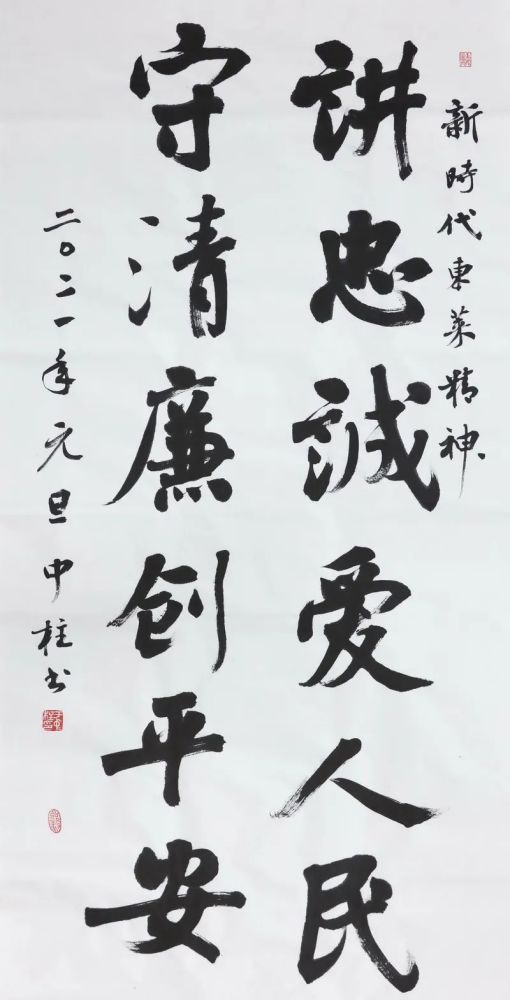 新時代東莱精神
讲忠誠爱人民
守清廉创平安
二〇二一年元旦中柱书